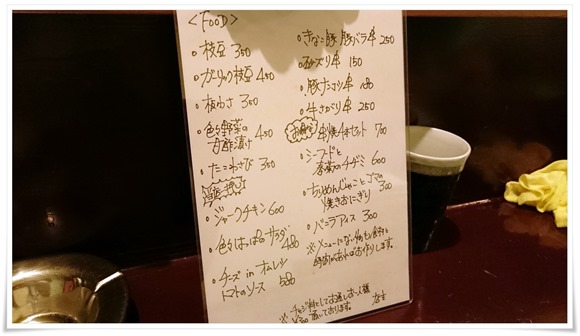 <FOOD>
。枝豆 350
。ガーリック枝豆 450
。板わさ 350
。色々野菜の
甘酢漬け 450
。たこわさび 350
。ジャークチキン 600
。色々はっぱのサラダ 480
。チーズ in オムレツ
トマトのソース 580
。きなこ豚 豚バラ串 250
。砂ズリ串 150
。牛さがり串 250
串焼4本セット 700
。シーフードと
春菊のチヂミ 600
。ちりめんじゃことゴマの
焼きおにぎり 300
。バニラアイス 300
※メニューにない物も食材と
時間があればお作りします。
※チャージ料としてお通しお一人様
¥300頂いております。 店主